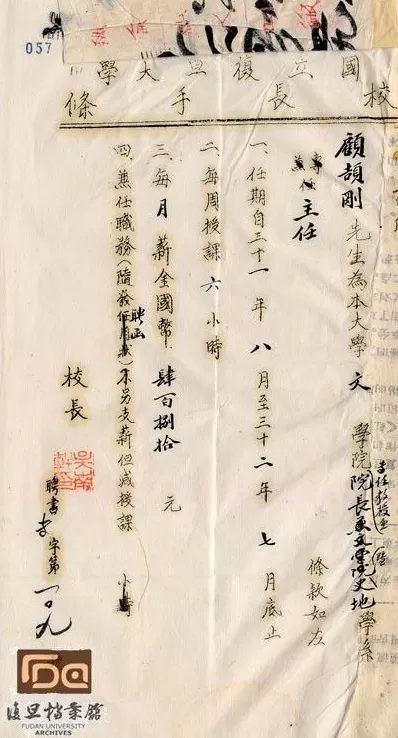 057
國立復旦大學
校長手條
顧頡剛先生為本大學文學院院長史地學系
專任
主任
條款如左
一、任期自三十一年八月至三十二年七月底止
二、每周授課六小時
三、每月薪金國幣肆百捌拾元
四、兼任職務(隨發聘函)不另支薪但減授課小時
校長
聘書專字第一〇九
復旦檔案館
FUDAN UNIVERSITY
ARCHIVES